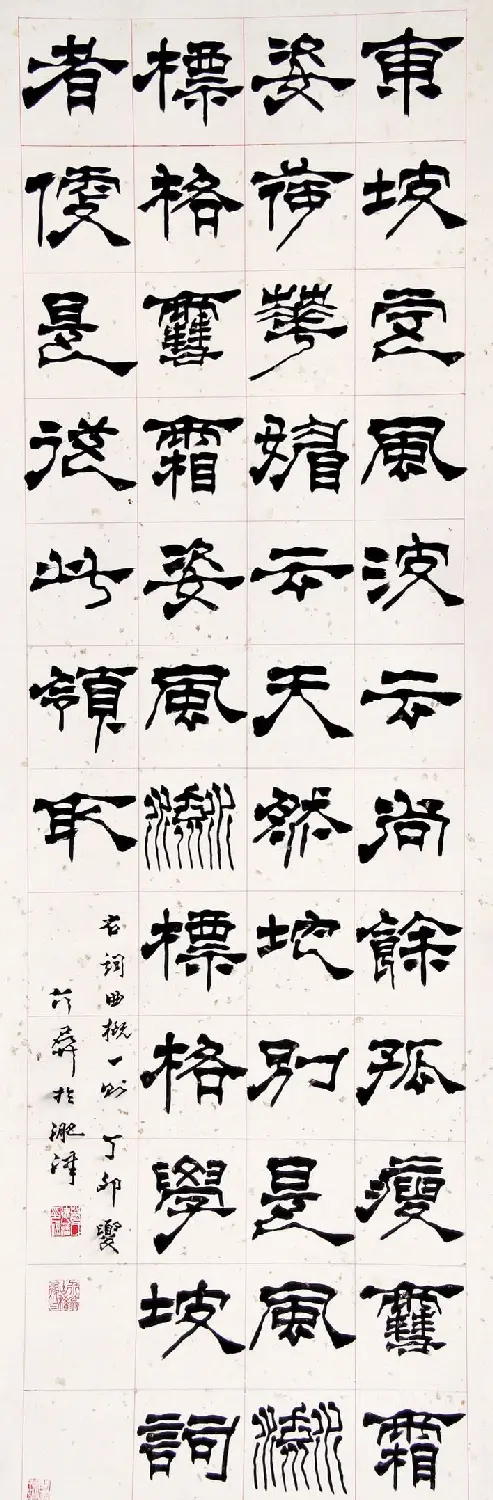 東坡定風波云尚餘孤瘦雪霜
姿荷華媚云天然地別是風流
標格雪霜姿風流標格學坡詞
者便是從此領取
右詞曲概一則 丁卯夏
於淝津